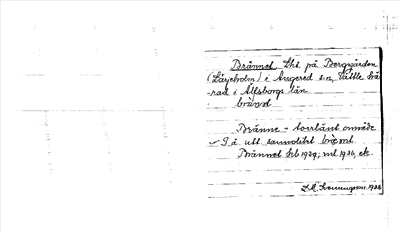 Brännet, Lht. på Berggården
(Lärjeholm) i Angered s:n, Vättle hä-
rad i Älfsborgs län.
Brände - torrlänt område
I ä. utt. sannolikt
Brännet hb 1939; ml 1936, ek.
S.M. Svenningsson 1938